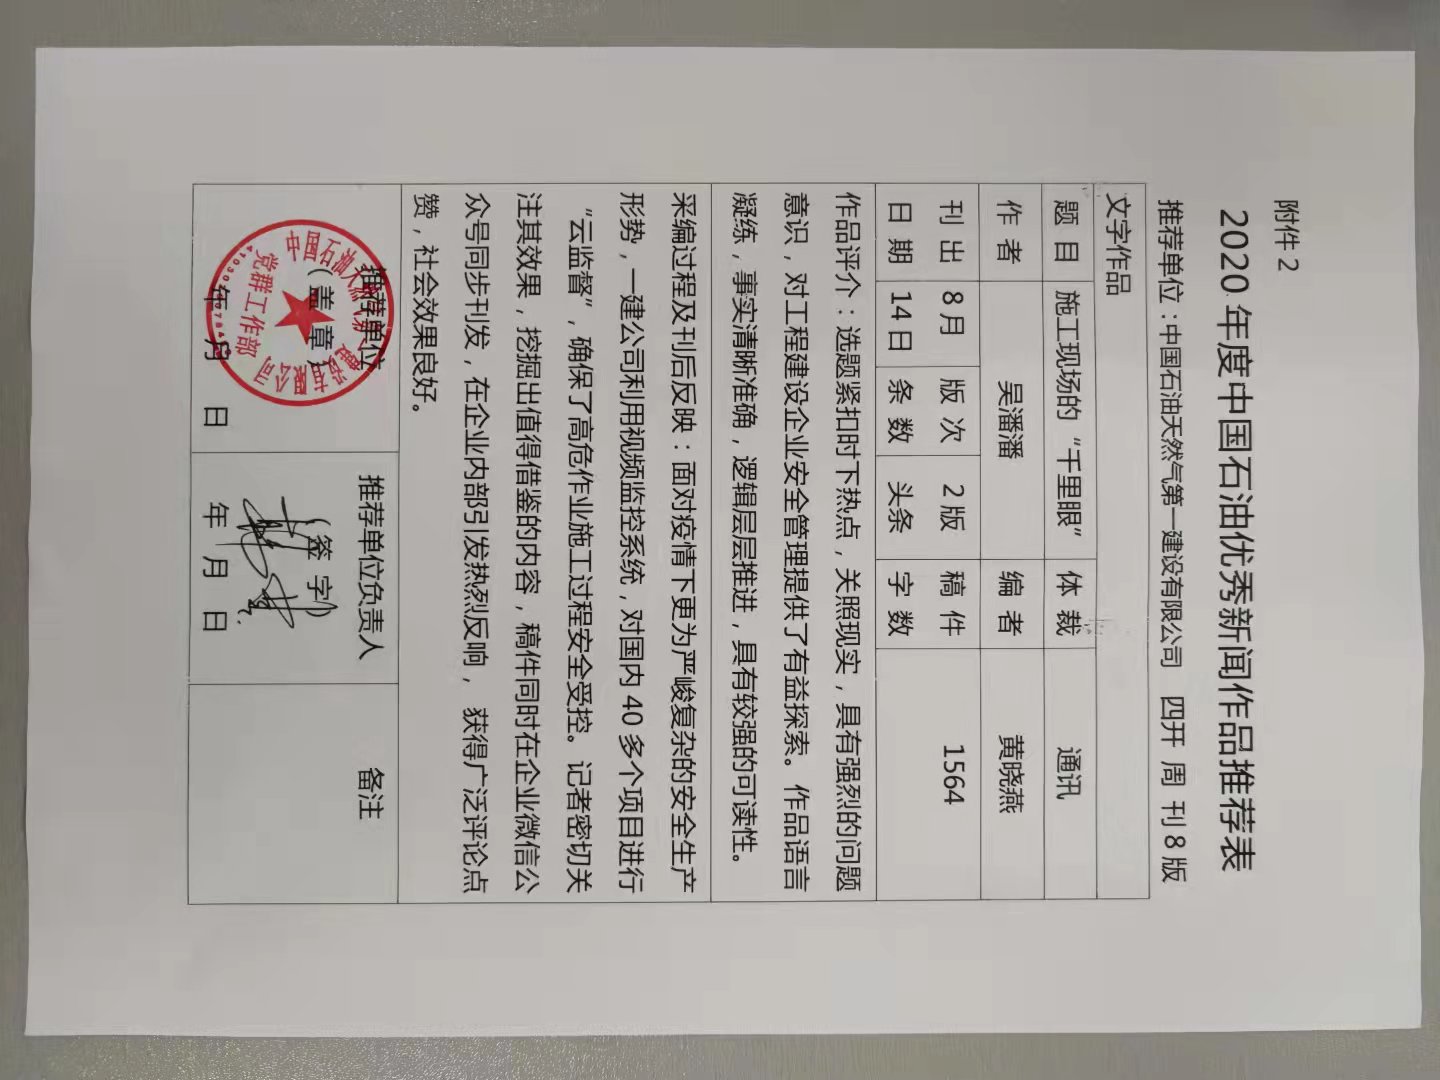 附件 2
2020 年度中国石油优秀新闻作品推荐表
推荐单位：中国石油天然气第一建设有限公司 四开 周 刊 8 版
文字作品
题 目 施工现场的“千里眼” 体 裁 通讯
作 者 吴潘潘 编 者 黄晓燕
刊 出 8 月 版 次 2 版 稿 件 1564
日 期 14 日 条 数 头条 字 数
作品评介：选题紧扣时下热点，关照现实，具有强烈的问题
意识，对工程建设企业安全管理提供了有益探索。作品语言
凝练，事实清晰准确，逻辑层层推进，具有较强的可读性。
采编过程及刊后反映：面对疫情下更为严峻复杂的安全生产
形势，一建公司利用视频监控系统，对国内 40 多个项目进行
“云监督”，确保了高危作业施工过程安全受控。记者密切关
注其效果，挖掘出值得借鉴的内容，稿件同时在企业微信公
众号同步刊发，在企业内部引发热烈反响， 获得广泛评论点
赞，社会效果良好。
推荐单位 推荐单位负责人 备注
（盖 章） （签 字）
年 月 日 年 月 日
中国石油天然气第一建设有限公司
党群工作部